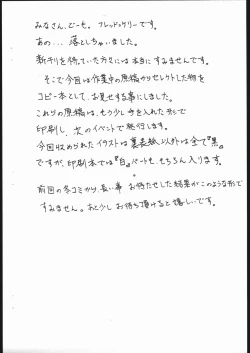 みなさん、どーも。フレッド・ケリーです。
あの…落としちゃいました。
新刊を待っていた方々には本当にすみませんです。
そこで今回は作業中の原稿からセレクトした物を
コピー本として、お見せする事にしました。
これらの原稿は、もう少し手を入れた形で
印刷し、次のイベントで発行します。
今回収められたイラストは裏表紙以外は全て『黒』
ですが、印刷本では『白』パートも、もちろん入ります。
前回の冬コミから、長い事お待たせした結果がこのような形で
すみません。あと少しお待ち頂けると嬉しいです。